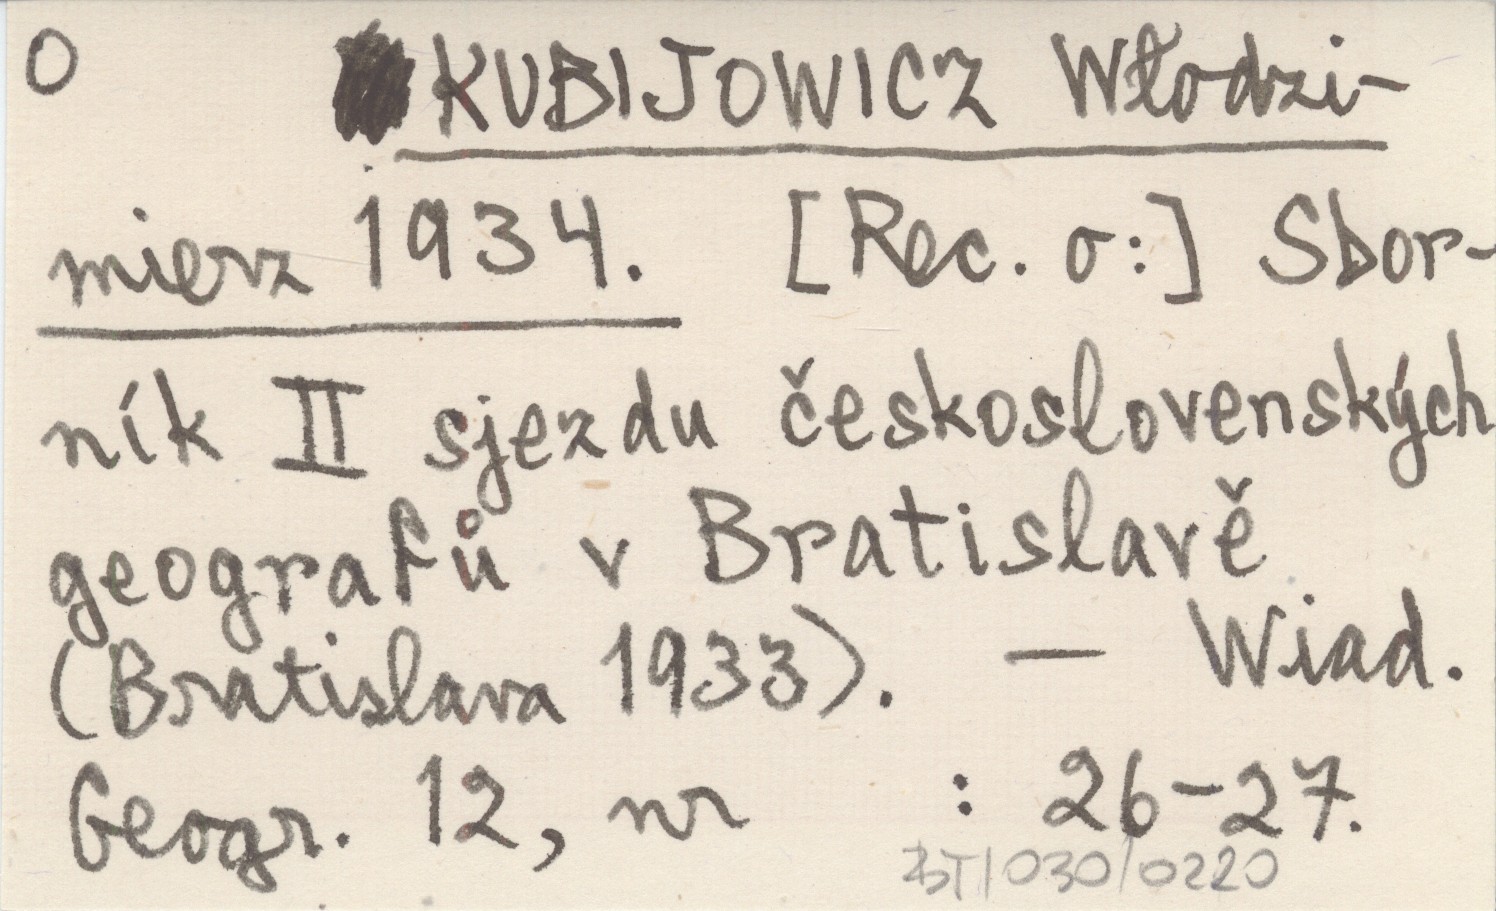 O KUBIJOWICZ Włodzi-
mierz 1934. [Rec. o:] Sbor-
ník II sjezdu československých
geografů v Bratislavě
(Bratislava 1933). — Wiad.
Geogr. 12, nr : 26-27.
BT/030/0220